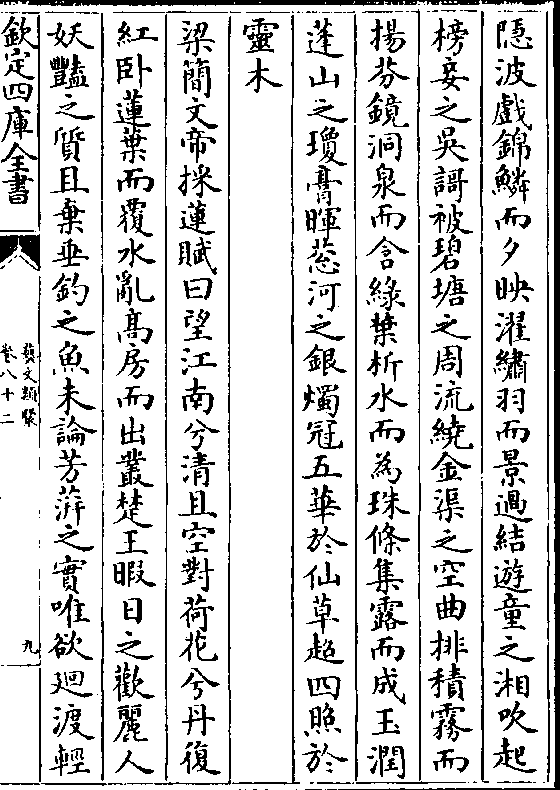 隠波戲錦鱗而夕映濯繡羽而景過結遊童之湘吹起
榜妾之吳謌被碧塘之周流繞金渠之空曲排積霧而
揚芬鏡洞泉而含緑葉析水而為珠條集露而成玉潤
蓬山之瓊膏暉葱河之銀燭冠五華於仙草超四照於
靈木
梁簡文帝採蓮賦曰望江南兮清且空對荷花兮丹復
紅卧蓮葉而覆水亂髙房而出叢楚王暇日之歡麗人
妖豔之質且棄垂釣之魚未論芳蓱之實唯欲廻渡輕
欽定四庫全書
藝文類聚
卷八十二
九